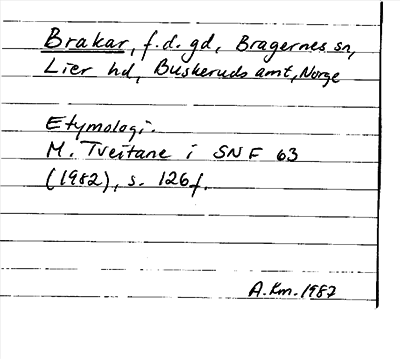 Brakar, f.d. gd, Bragernes sn,
Lier hd, Buskeruds amt, Norge
Etymologi.
M. Tveitane i SNF 63
(1982), s. 126f.
A.Km. 1987